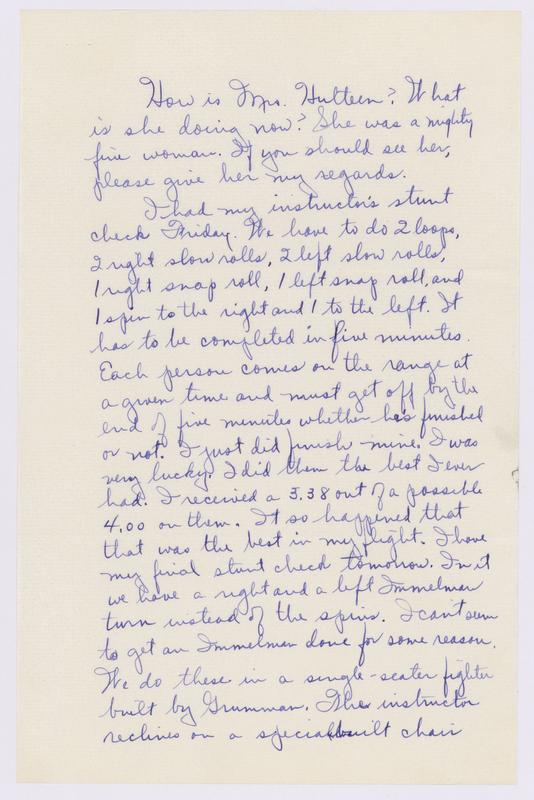 How is Mrs. Hulteen? What
is she doing now? She was a mighty
fine woman. If you should see her,
please give her my regards.
I had my instructor's stunt
check Friday. We have to do 2 loops,
2 right slow rolls, 2 left slow rolls,
1 right snap roll, 1 left snap roll, and
1 spin to the right and 1 to the left. It
has to be completed in five minutes.
Each person comes on the range at
a given time and must get off by the
end of five minutes whether he's finished
or not. I just did finish mine. I was
very lucky. I did them the best I ever
had. I received a 3.38 out of a possible
4.00 on them. It so happened that
that was the best in my flight. I have
my final stunt check tomorrow. In it
we have a right and a left Immelman
turn instead of the spins. I can't seem
to get an Immelman done for some reason.
We do these in a single-seater fighter
built by Grumman. The instructor
reclines on a special built chair